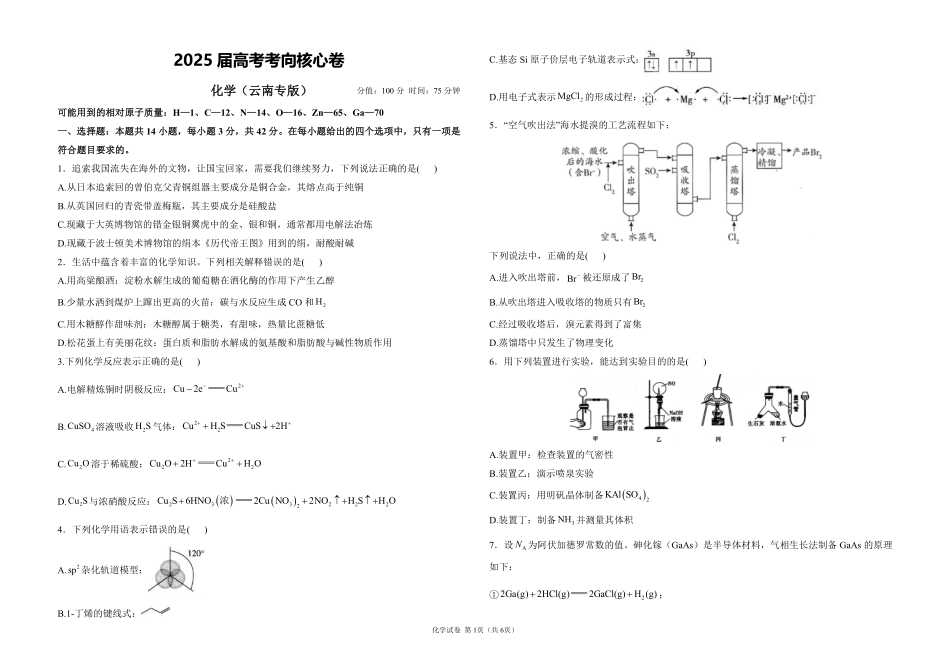 2025 届高考考向核心卷
化学（云南专版）	分值：100 分 时间：75 分钟
可能用到的相对原子质量：H—1、C—12、N—14、O—16、Zn—65、Ga—70
一、选择题：本题共 14 小题，每小题 3 分，共 42 分。在每小题给出的四个选项中，只有一项是
符合题目要求的。
1．追索我国流失在海外的文物，让国宝回家，需要我们继续努力，下列说法正确的是(　　)
A.从日本追索回的曾伯克父青铜组器主要成分是铜合金，其熔点高于纯铜
B.从英国回归的青瓷带盖梅瓶，其主要成分是硅酸盐
C.现藏于大英博物馆的错金银铜翼虎中的金、银和铜，通常都用电解法冶炼
D.现藏于波士顿美术博物馆的绢本《历代帝王图》用到的绢，耐酸耐碱
2．生活中蕴含着丰富的化学知识。下列相关解释错误的是(　　)
A.用高粱酿酒：淀粉水解生成的葡萄糖在酒化酶的作用下产生乙醇
B.少量水洒到煤炉上蹿出更高的火苗：碳与水反应生成 CO 和 H₂
C.用木糖醇作甜味剂：木糖醇属于糖类，有甜味，热量比蔗糖低
D.松花蛋上有美丽花纹：蛋白质和脂肪水解成的氨基酸和脂肪酸与碱性物质作用
3.下列化学反应表示正确的是(　　)
A.电解精炼铜时阴极反应：Cu－2e⁻══Cu²⁺
B.CuSO₄溶液吸收 H₂S 气体：Cu²⁺＋H₂S══CuS↓＋2H⁺
C.Cu₂O 溶于稀硫酸：Cu₂O＋2H⁺══Cu²⁺＋H₂O
D.Cu₂S 与浓硝酸反应：Cu₂S＋6HNO₃(浓)══2Cu(NO₃)₂＋2NO₂↑＋H₂S↑＋H₂O
4．下列化学用语表示错误的是(　　)
A.sp²杂化轨道模型：	120°
B.1-丁烯的键线式：
C.基态 Si 原子价层电子轨道表示式：	3s	3p
↑↓	↑	↑
D.用电子式表示 MgCl₂ 的形成过程：:Cl·＋·Mg·＋·Cl:→[:Cl:]⁻Mg²⁺[:Cl:]⁻
5．“空气吹出法”海水提溴的工艺流程如下：
浓缩、酸化
后的海水
(含Br⁻)
Cl₂
吹出塔
SO₂
吸收塔
蒸馏塔
冷凝、
精馏
产品Br₂
空气、水蒸气
Cl₂
下列说法中，正确的是(　　)
A.进入吹出塔前，Br⁻ 被还原成了 Br₂
B.从吹出塔进入吸收塔的物质只有 Br₂
C.经过吸收塔后，溴元素得到了富集
D.蒸馏塔中只发生了物理变化
6．用下列装置进行实验，能达到实验目的的是(　　)
观察是
否有气
泡冒出
甲
NO
NaOH
溶液
乙
丙
水
量气管
生石灰	浓氨水
丁
A.装置甲：检查装置的气密性
B.装置乙：演示喷泉实验
C.装置丙：用明矾晶体制备 KAl(SO₄)₂
D.装置丁：制备 NH₃ 并测量其体积
7．设 N_A 为阿伏加德罗常数的值。砷化镓（GaAs）是半导体材料，气相生长法制备 GaAs 的原理
如下：
①2Ga(g)＋2HCl(g)══2GaCl(g)＋H₂(g)；
化学试卷 第 1页（共 6页）